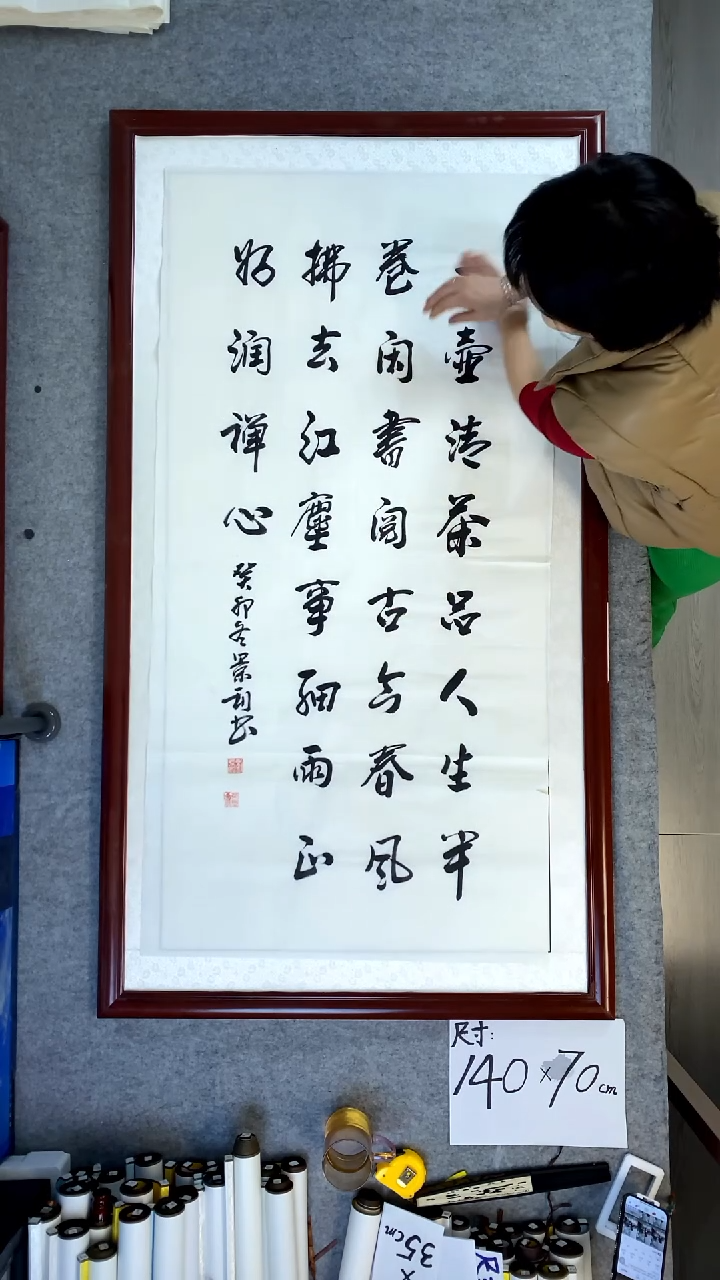 壶清茶品人生半
卷闲书阅古今春风
拂去红尘事细雨正
好润禅心
癸卯冬景利书
尺寸:
140×70cm
35cm
×
尺